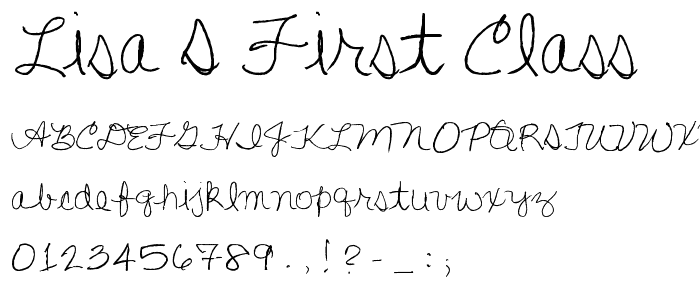 Lisa S First Class
ABCDEFGHIJKLMNOPQRSTUVWX
abcdefghijklmnopqrstuvwxyz
0123456789.,!?-_:;